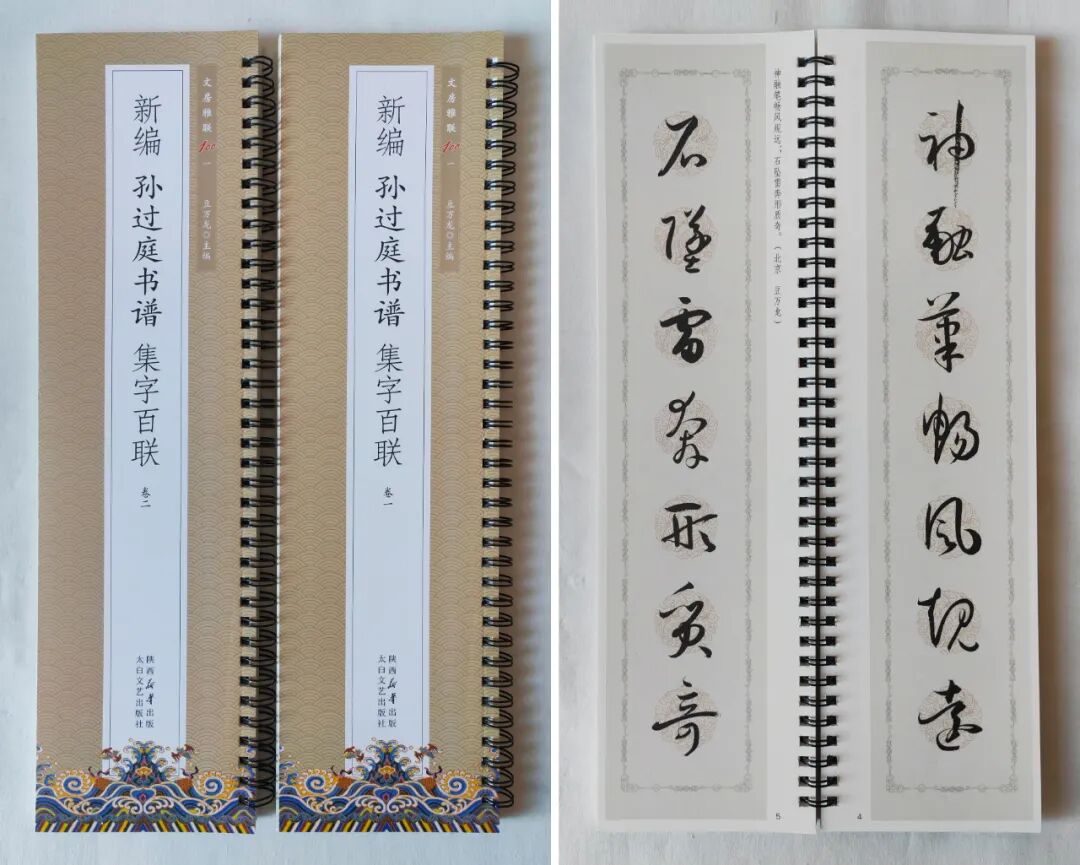 文房雅联100 一 豆万龙◎主编
新编 孙过庭书谱 集字百联 卷二
陕西新华出版
太白文艺出版社
文房雅联100 一 豆万龙◎主编
新编 孙过庭书谱 集字百联 卷一
陕西新华出版
太白文艺出版社
神融笔畅风规远
4
神融笔畅风规远；石坠雷奔形质奇。（北京 豆万龙）
石坠雷奔形质奇
5